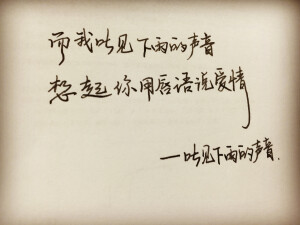 而我听见下雨的声音
想起你用唇语说爱情
—听见下雨的声音.